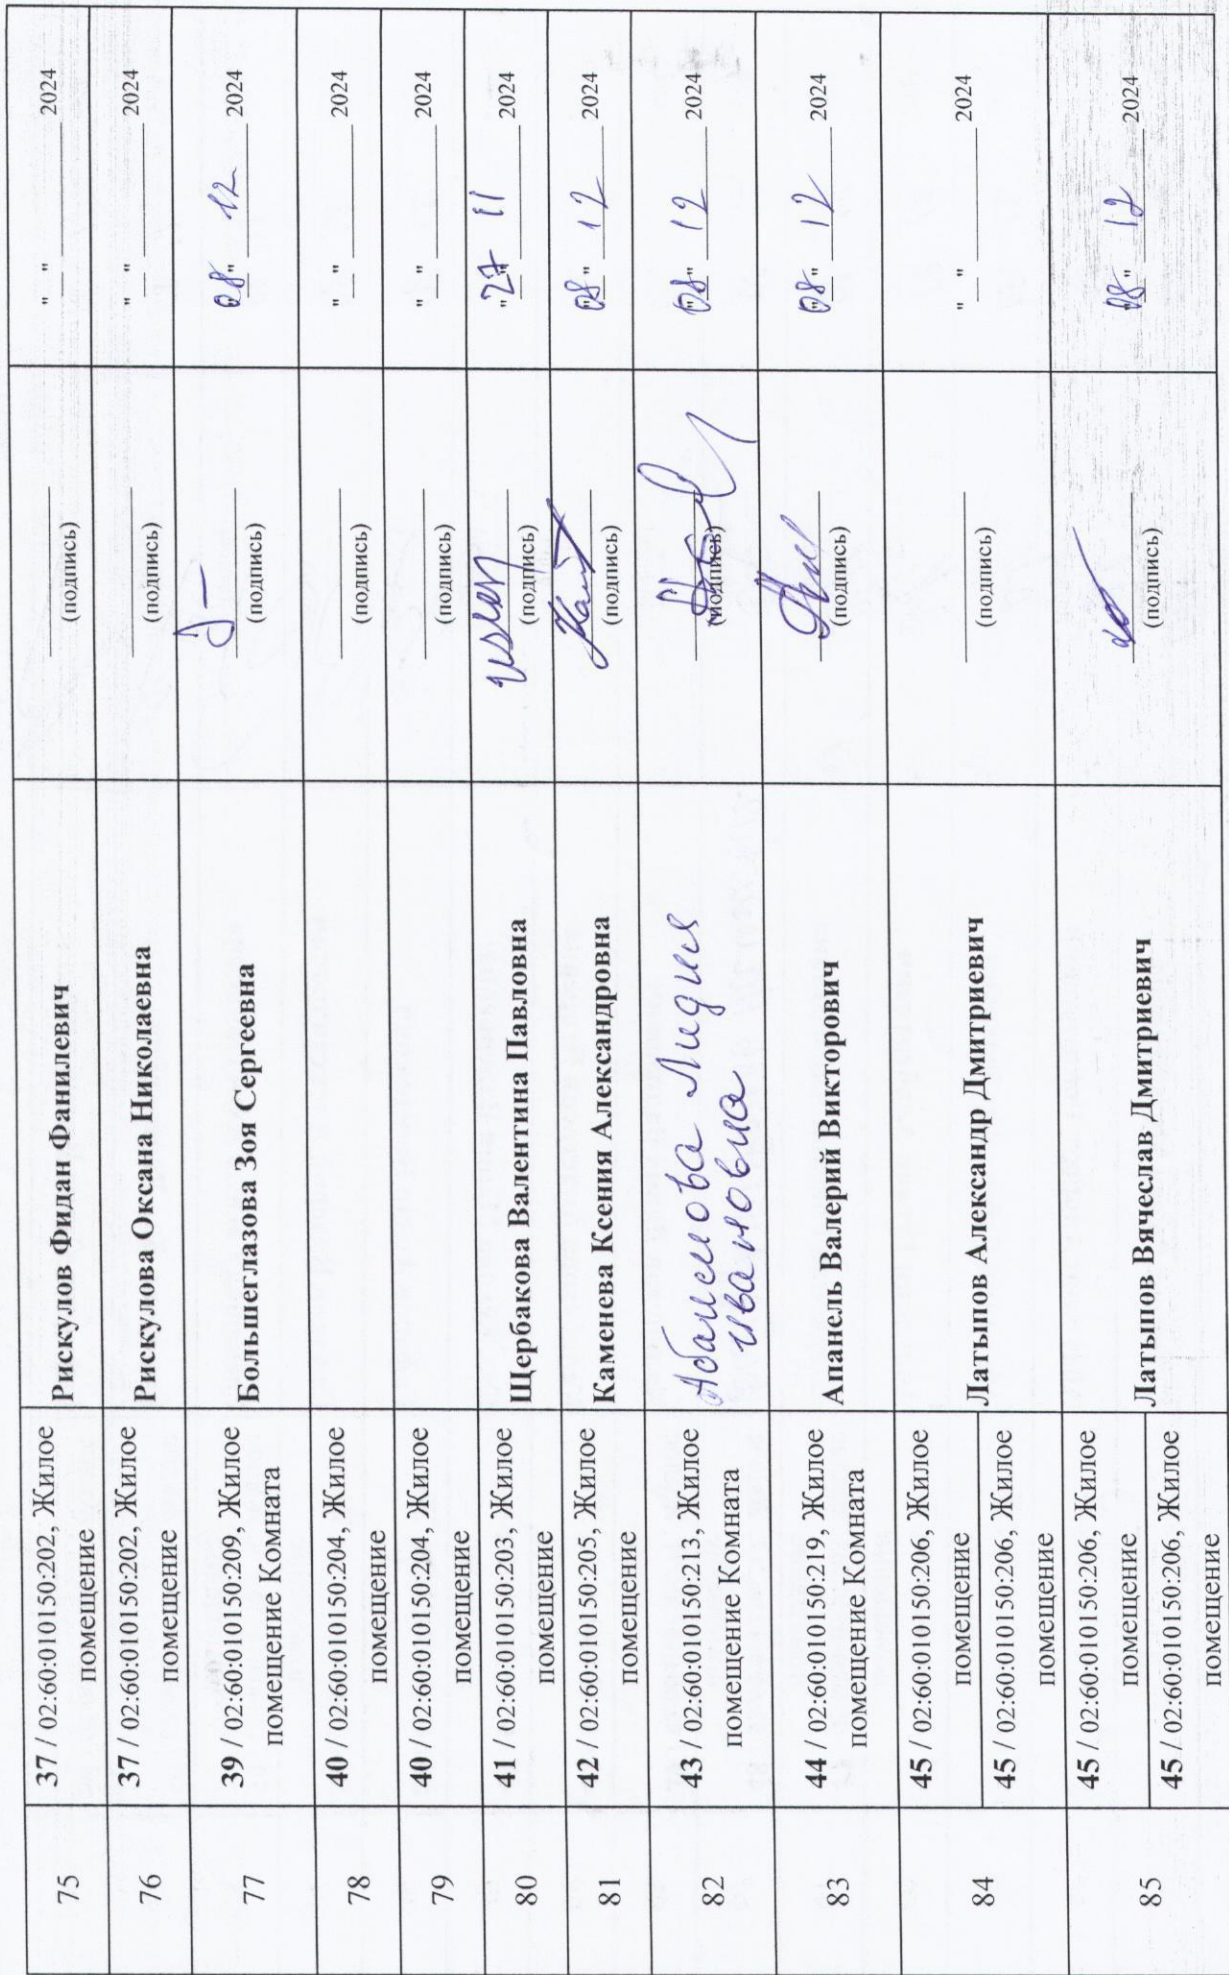 75
37 / 02:60:010150:202, Жилое
помещение
Рискулов Фидан Фанилевич
(подпись)
"__" ________ 2024
76
37 / 02:60:010150:202, Жилое
помещение
Рискулова Оксана Николаевна
(подпись)
"__" ________ 2024
77
39 / 02:60:010150:209, Жилое
помещение Комната
Большеглазова Зоя Сергеевна
(подпись)
"08" 12 2024
78
40 / 02:60:010150:204, Жилое
помещение
(подпись)
"__" ________ 2024
79
40 / 02:60:010150:204, Жилое
помещение
(подпись)
"__" ________ 2024
80
41 / 02:60:010150:203, Жилое
помещение
Щербакова Валентина Павловна
(подпись)
"27" 11 2024
81
42 / 02:60:010150:205, Жилое
помещение
Каменева Ксения Александровна
(подпись)
"08" 12 2024
82
43 / 02:60:010150:213, Жилое
помещение Комната
Лидия
Ивановна
(подпись)
"08" 12 2024
83
44 / 02:60:010150:219, Жилое
помещение Комната
Апанель Валерий Викторович
(подпись)
"08" 12 2024
84
45 / 02:60:010150:206, Жилое
помещение
45 / 02:60:010150:206, Жилое
помещение
Латыпов Александр Дмитриевич
(подпись)
"__" ________ 2024
85
45 / 02:60:010150:206, Жилое
помещение
45 / 02:60:010150:206, Жилое
помещение
Латыпов Вячеслав Дмитриевич
(подпись)
"08" 12 2024